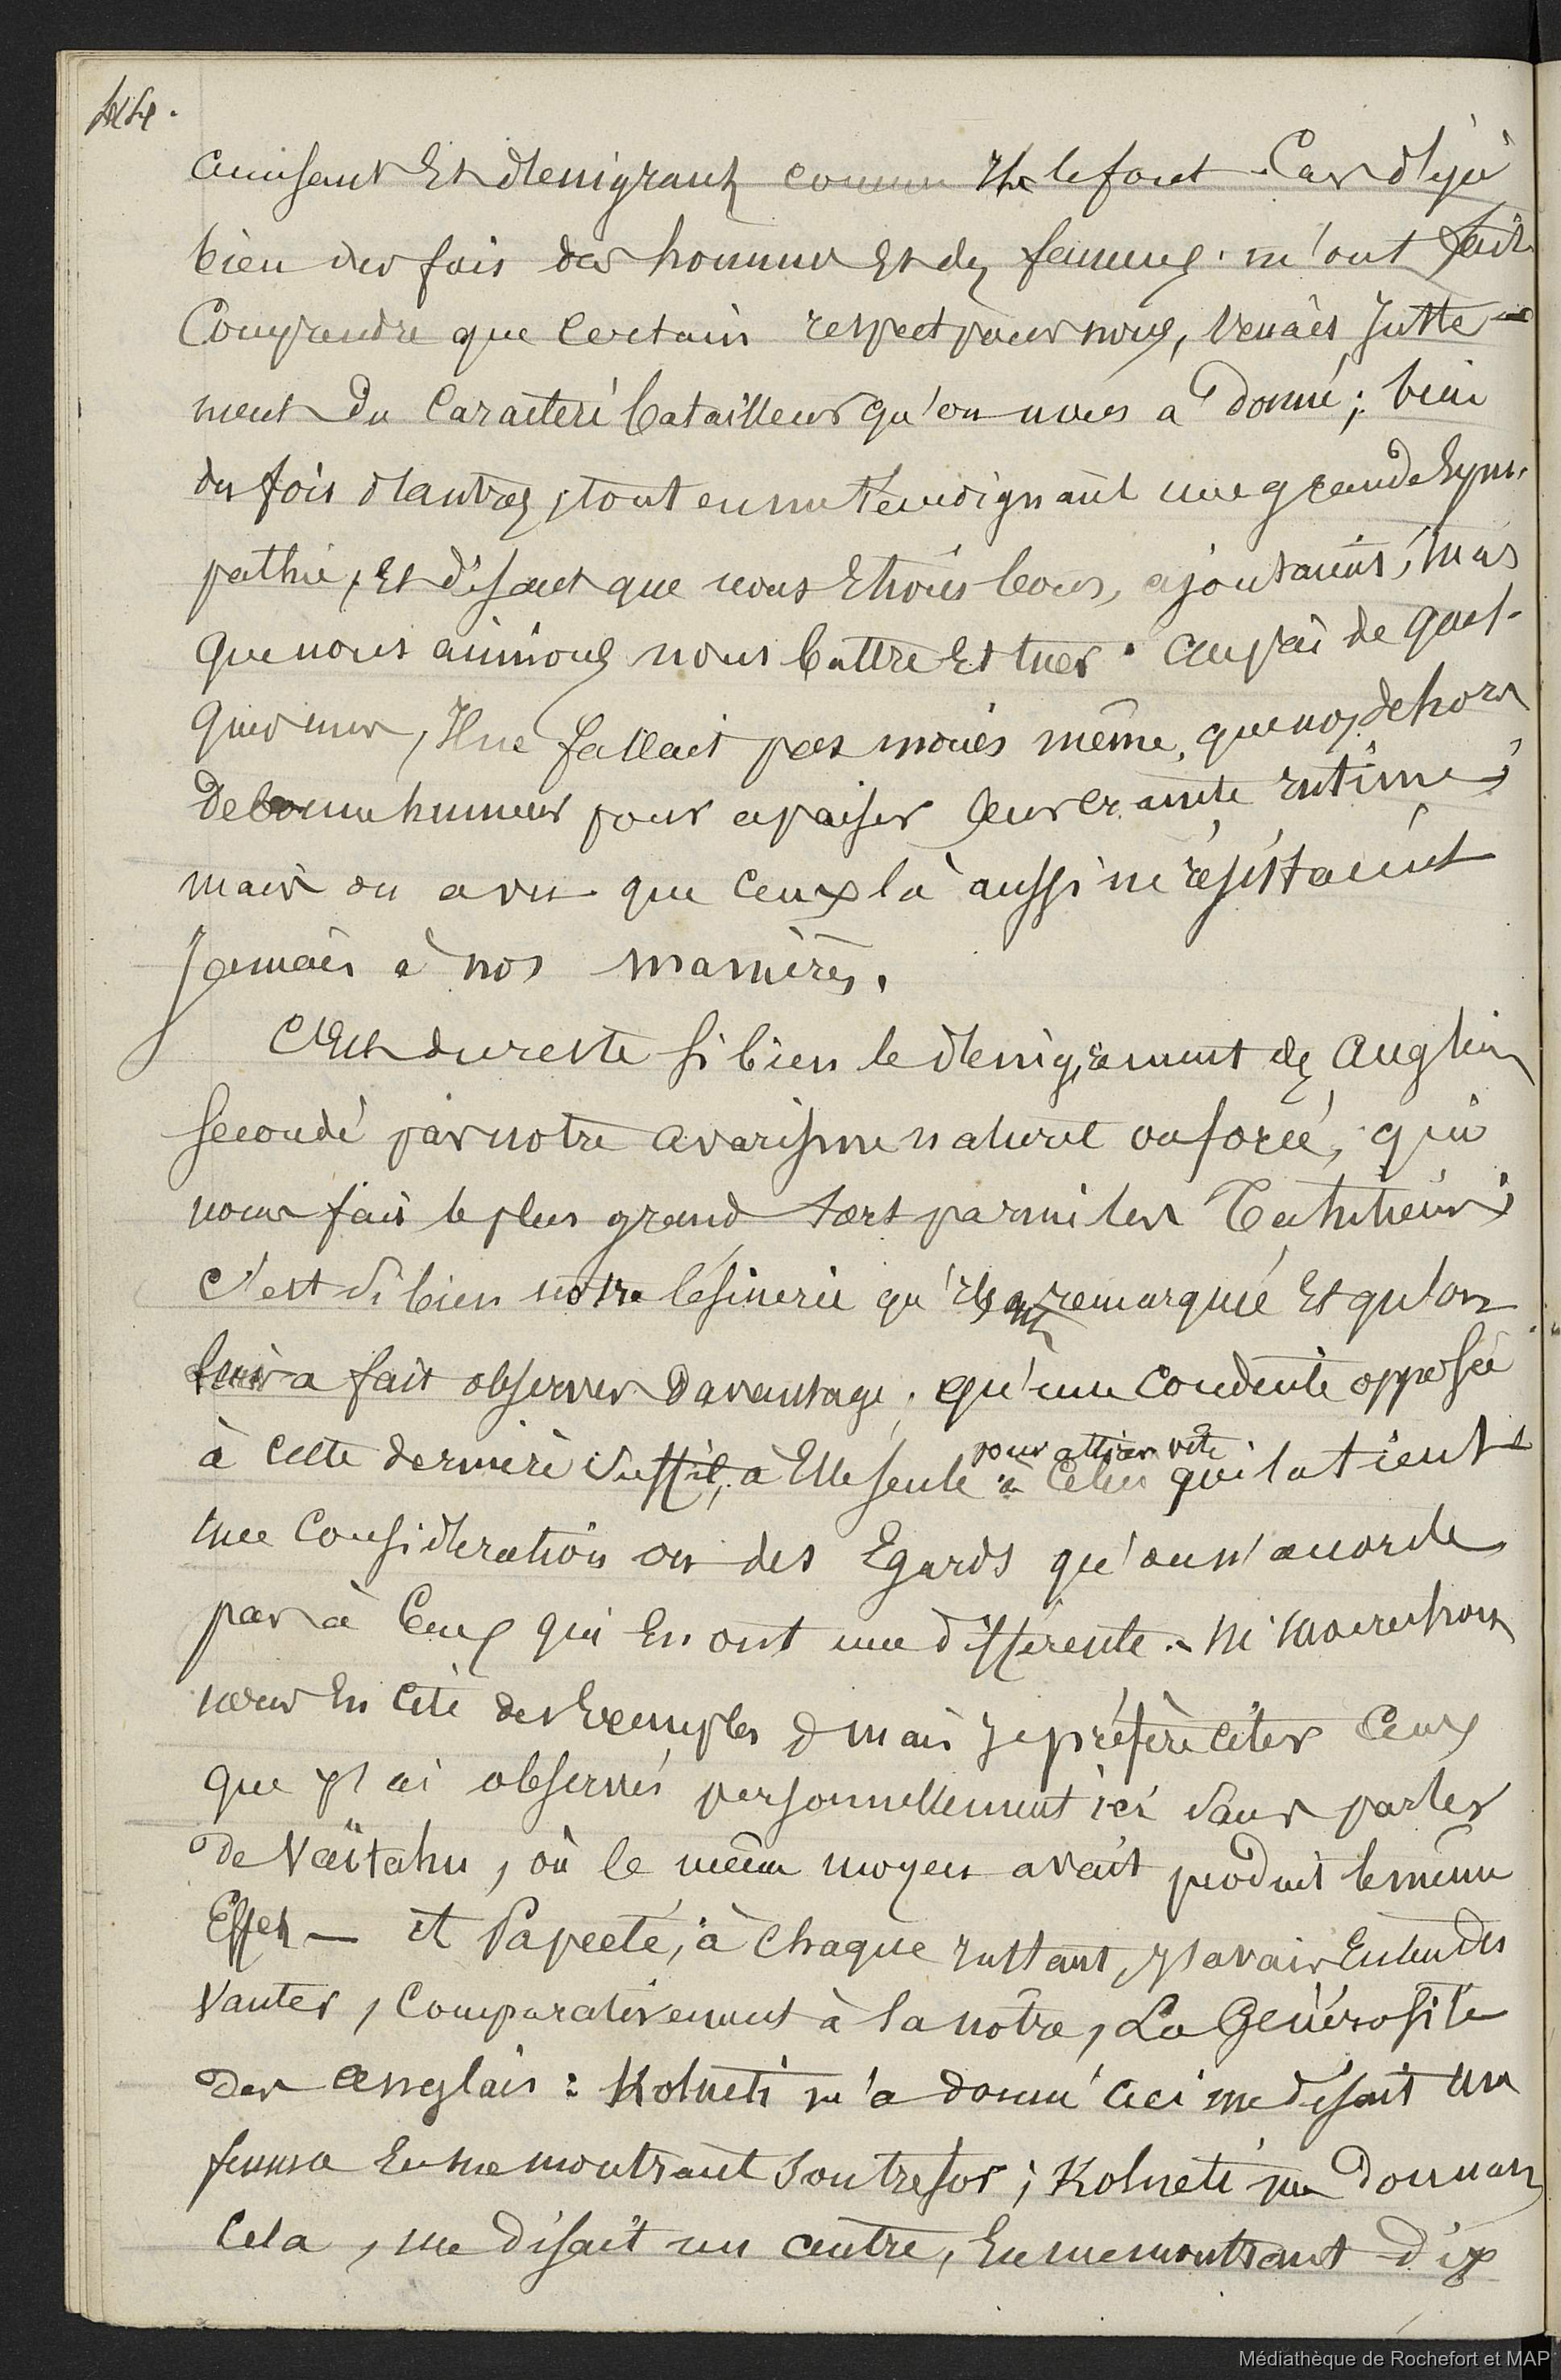 accusant Et dénigrant comme Ils le font. Car déja
bien des fois des hommes Et des femmes m'ont fait
Comprendre que Certain respect pour nous, venais Juste-
ment du Caractère batailleur qu'on nous a donné; bien
des fois d'autres, tout en me témoignant une grande Sym-
pathie, Et disant que nous Etions bons, ajoutaient, mais
que nous aimions nous battre Et tuer. auprès de quel-
ques unes, Il ne fallait pas moins même, que nos dehors
de bonne humeur pour apaiser leur crainte intime;
mais on a vu que Ceux là aussi ne résistaient
Jamais à nos manières.
C'Est du reste si bien le dénigrement des anglais
secondé par notre avarisme naturel ou forcé, qui
nous fais le plus grand tort parmi les Tahitiens;
c'est si bien notre lésinerie qu'ils ont remarquée Et qu'on
leur a fait observer Davantage, qu'une Conduite opposée
à cette dernière suffit, à Elle seule pour attirer vite à Celui qui la tient
une Considération ou des Egards qu'on n'accorde
pas à Ceux qui En ont une différente. Mr
nous En cite des Exemples mais je préfère citer Ceux
que j'ai observés personnellement ici sans parler
de Vaïtahu, où le même moyen avait produit le même
Effet — et Papeete, à Chaque instant, j'avais Entendu
vanter, Comparativement à la nôtre, La Générosité
des anglais: Kolneti m'a donné ceci me disait une
femme En me montrant son trésor; Kolneti me donnan
Cela, me disait un autre, En me montrant dix
Médiathèque de Rochefort et MAP